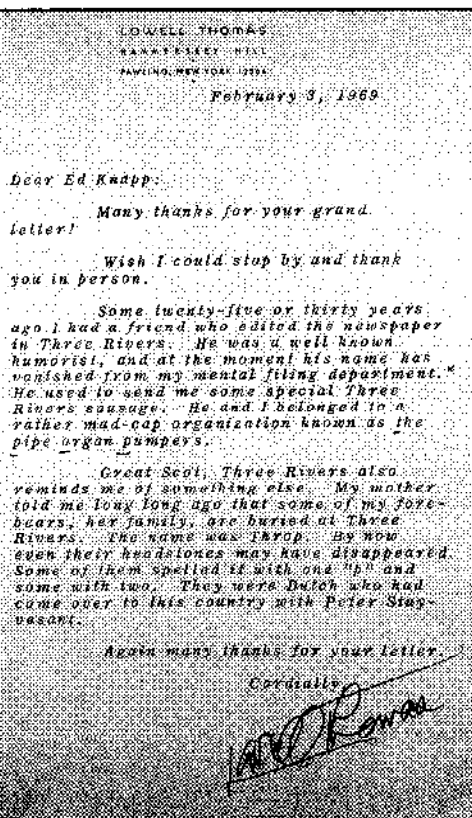 LOWELL THOMAS
HAMMERSLEY HILL
PAWLING, NEW YORK 12564
February 3, 1969
Dear Ed Knapp:
Many thanks for your grand
letter!
Wish I could stop by and thank
you in person.
Some twenty-five or thirty years
ago I had a friend who edited the newspaper
in Three Rivers. He was a well known
humorist, and at the moment his name has
vanished from my mental filing department."
He used to send me some special Three
Rivers sausage. He and I belonged to a
rather mad-cap organization known as the
pipe organ pumpers.
Great Scot, Three Rivers also
reminds me of something else. My mother
told me long long ago that some of my fore-
bears, her family, are buried at Three
Rivers. The name was Throp. By now
even their headslones may have disappeared.
Some of them spelled it with one "p" and
some with two. They were Dutch who had
come over to this country with Peter Stuy-
vesant.
Again many thanks for your letter.
Cordially
Lowell Thomas